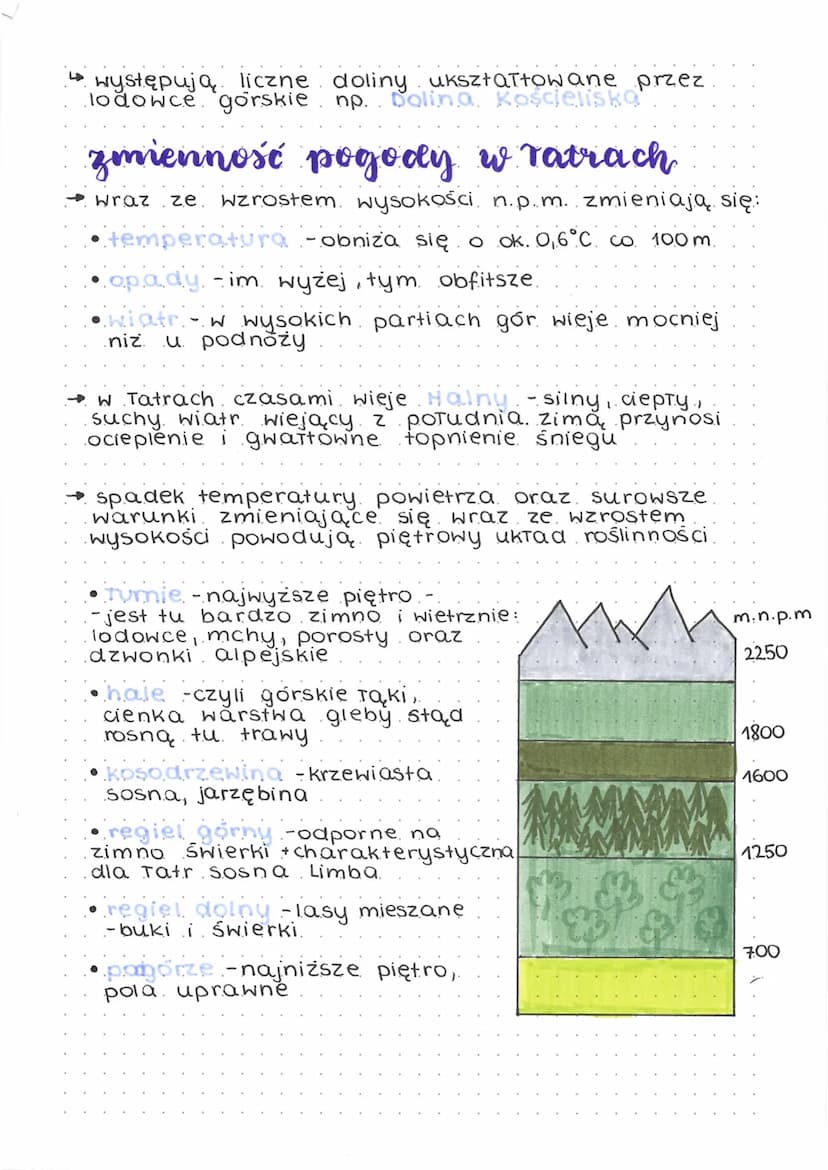 ↳ występują liczne doliny ukształtowane przez
lodowce górskie np. Dolina Kościeliska
zmienność pogody w Tatrach
→ wraz ze wzrostem wysokości n.p.m. zmieniają się:
• temperatura - obniża się o ok. 0,6°C co 100m
• opady - im wyżej, tym obfitsze
• wiatr - w wysokich partiach gór wieje mocniej
niż u podnóży
→ w Tatrach czasami wieje Halny - silny, ciepły,
suchy wiatr wiejący z południa. zimą przynosi
ocieplenie i gwałtowne topnienie śniegu
→ spadek temperatury powietrza oraz surowsze
warunki zmieniające się wraz ze wzrostem
wysokości powodują piętrowy układ roślinności
• Turnie - najwyższe piętro -
- jest tu bardzo zimno i wietrznie:
lodowce, mchy, porosty oraz
dzwonki alpejskie
• hale - czyli górskie łąki,
cienka warstwa gleby stąd
rosną tu trawy
• kosodrzewina - krzewiasta
sosna, jarzębina
• regiel górny - odporne na
zimno świerki + charakterystyczna
dla Tatr sosna Limba
• regiel dolny - lasy mieszane
- buki i świerki
• pogórze - najniższe piętro,
pola uprawne
m.n.p.m
2250
1800
1600
1250
700